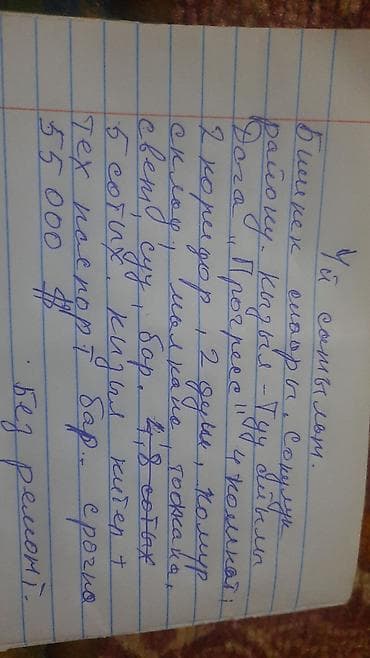 Үй сатылат.
Бишкек шаары. Сокулук
району. Кызыл-Туу айылы
Дача "Прогресс" 4 комнат;
2 коридор, 2 душ, комур
склад, малкана, тоокана,
свет, суу, бар. 4,8 сотых
5 сотых. кызыл китеп +
тех паспорт бар.. срочно
55 000 $
. Без ремонт.